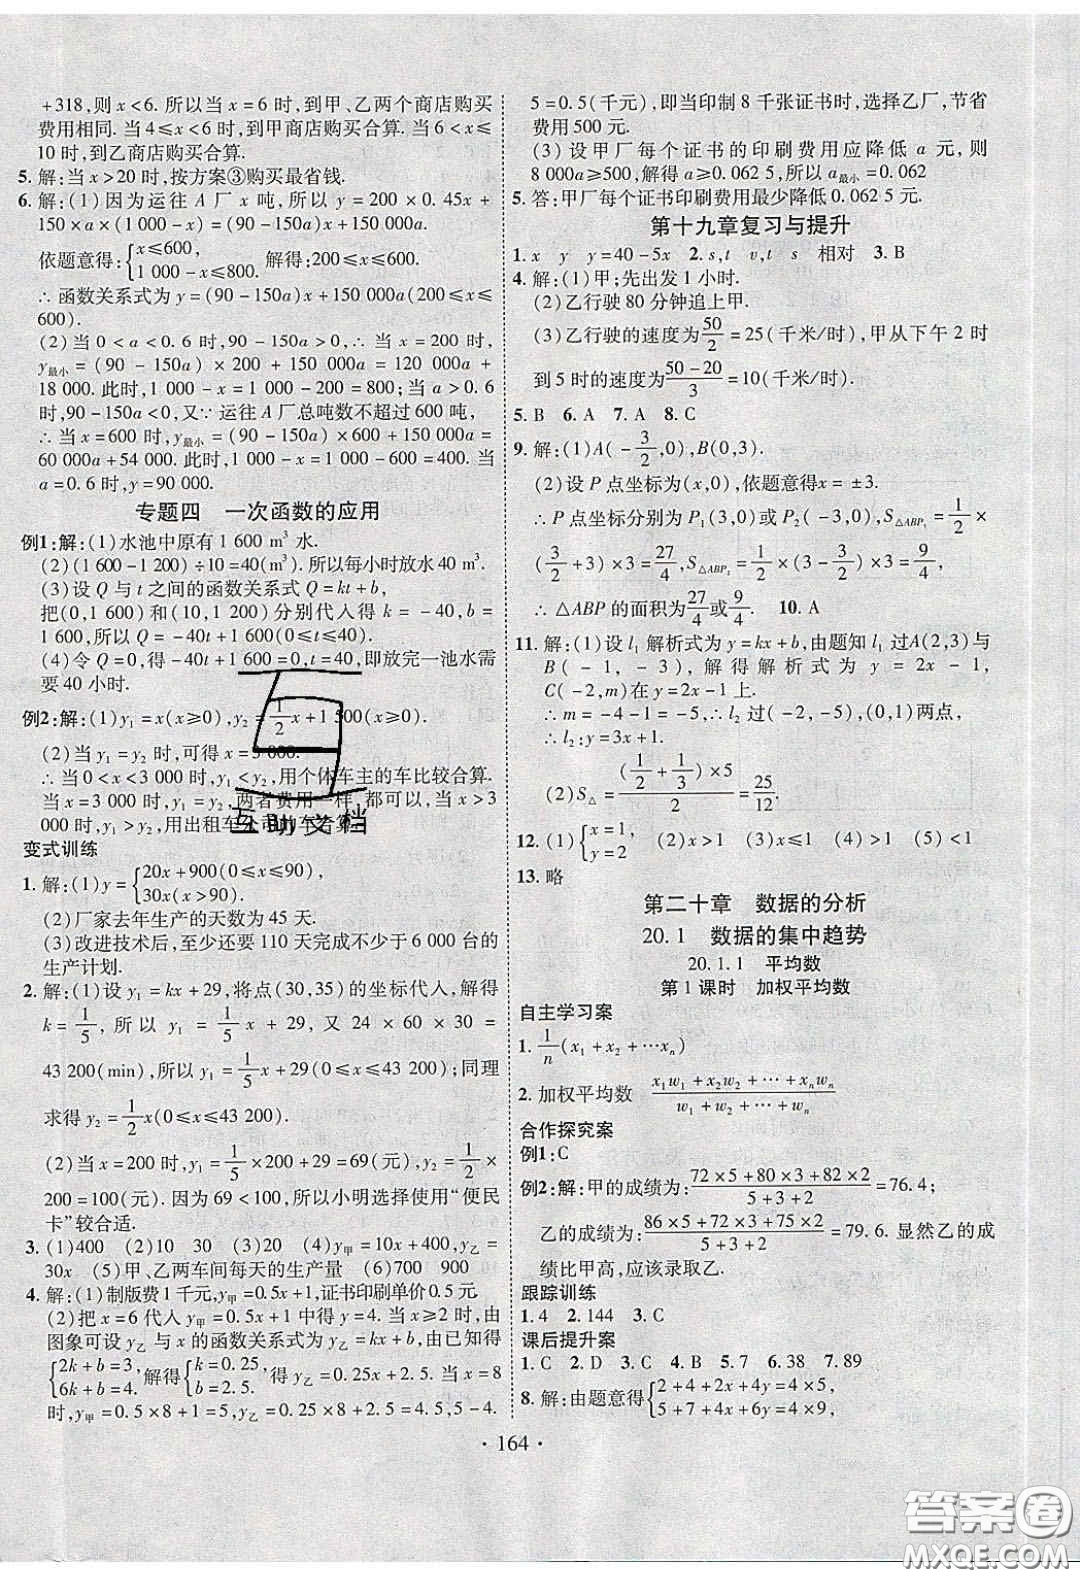 +318,则x<6. 所以当x=6时,到甲、乙两个商店购买
费用相同. 当4≤x<6时,到甲商店购买合算. 当6<x≤
10时,到乙商店购买合算.
5. 解:当x>20时,按方案③购买最省钱.
6. 解:(1)因为运往A厂x吨,所以y=200×0.45x+
150×a×(1 000-x)=(90-150a)x+150 000a.
依题意得:{x≤600, 1 000-x≤800. 解得:200≤x≤600.
∴函数关系式为y=(90-150a)x+150 000a(200≤x≤
600).
(2)当0<a<0.6时,90-150a>0,∴当x=200时,
y最小=(90-150a)×200+150 000a=120 000a+
18 000. 此时,1 000-200=800;当a>0.6
时,90-150a<0,又∵运往A厂总吨数不超过600吨,
∴当x=600时,y最小=(90-150a)×600+150 000a=
60 000a+54 000. 此时,1 000-x=1 000-600=400. 当
a=0.6时,y=90 000.
专题四 一次函数的应用
例1:解:(1)水池中原有1 600 m³水.
(2)(1 600-1 200)÷10=40(m³). 所以每小时放水40 m³.
(3)设Q与t之间的函数关系式Q=kt+b,
把(0,1 600)和(10,1 200)分别代入得k=-40,b=
1 600,所以Q=-40t+1 600(0≤t≤40).
(4)令Q=0,得-40t+1 600=0,t=40,即放完一池水需
要40小时.
例2:解:(1)y₁=x(x≥0),y₂=1/2x+1 500(x≥0).
(2)当y₁=y₂时,可得x=3 000.
∴当0<x<3 000时,y₁<y₂,用个体车主的车比较合算.
当x=3 000时,y₁=y₂,两者费用一样,都可以,当x>3
000时,y₁>y₂,用出租车公司的车合算.
互助文档
变式训练
1. 解:(1)y={20x+900(0≤x≤90), 30x(x>90).
(2)厂家去年生产的天数为45天.
(3)改进技术后,至少还要110天完成不少于6 000台的
生产计划.
2. 解:(1)设y₁=kx+29,将点(30,35)的坐标代入,解得
k=1/5,所以y₁=1/5x+29,又24×60×30=
43 200(min),所以y₁=1/5x+29(0≤x≤43 200);同理
求得y₂=1/2x(0≤x≤43 200).
(2)当x=200时,y₁=1/5×200+29=69(元),y₂=1/2×
200=100(元). 因为69<100,所以小明选择使用“便民
卡”较合适.
3. (1)400 (2)10 30 (3)20 (4)y甲=10x+400,y乙=
30x (5)甲、乙两车间每天的生产量 (6)700 900
4. 解:(1)制版费1千元,y甲=0.5x+1,证书印刷单价0.5元
(2)把x=6代入y甲=0.5x+1中得y=4. 当x≥2时,由
图象可设y乙与x的函数关系式为y乙=kx+b,由已知得
{2k+b=3, 6k+b=4. 解得{k=0.25, b=2.5. 得y乙=0.25x+2.5. 当x=8
时,y甲=0.5×8+1=5,y乙=0.25×8+2.5=4.5.
5=0.5(千元),即当印制8千张证书时,选择乙厂,节省
费用500元.
(3)设甲厂每个证书的印刷费用应降低a元,则
8 000a≥500,解得a≥0.062 5,所以a最小=0.062
5. 答:甲厂每个证书印刷费用最少降低0.062 5元.
第十九章复习与提升
1. x y y=40-5x 2. s,t v,t s 相对 3. B
4. 解:(1)甲;先出发1小时.
(2)乙行驶80分钟追上甲.
(3)乙行驶的速度为50/2=25(千米/时),甲从下午2时
到5时的速度为(50-20)/3=10(千米/时).
5. B 6. A 7. A 8. C
9. 解:(1)A(-3/2,0),B(0,3).
(2)设P点坐标为(x,0),依题意得x=±3.
∴P点坐标分别为P₁(3,0)或P₂(-3,0),S△ABP₁=1/2×
(3/2+3)×3=27/4,S△ABP₂=1/2×(3-3/2)×3=9/4,
∴△ABP的面积为27/4或9/4. 10. A
11. 解:(1)设l₁解析式为y=kx+b,由题知l₁过A(2,3)与
B(-1,-3),解得解析式为y=2x-1,
C(-2,m)在y=2x-1上.
∴m=-4-1=-5,∴l₂过(-2,-5),(0,1)两点,
∴l₂:y=3x+1.
(2)S△=((1/2+1/3)×5)/2=25/12.
12. (1){x=1, y=2 (2)x>1 (3)x≤1 (4)x>1 (5)<1
13. 略
第二十章 数据的分析
20.1 数据的集中趋势
20.1.1 平均数
第1课时 加权平均数
自主学习案
1. 1/n(x₁+x₂+⋯xₙ)
2. 加权平均数 (x₁w₁+x₂w₂+⋯+xₙwₙ)/(w₁+w₂+⋯+wₙ)
合作探究案
例1:C
例2:解:甲的成绩为:(72×5+80×3+82×2)/(5+3+2)=76.4;
乙的成绩为:(86×5+72×3+75×2)/(5+3+2)=79.6. 显然乙的成
绩比甲高,应该录取乙.
跟踪训练
1. 4 2. 144 3. C
课后提升案
1. C 2. D 3. C 4. B 5. 7 6. 38 7. 89
8. 解:由题意得{2+4+2x+4y=4×9, 5+7+4x+6y=4×9,
· 164 ·
答案圈
MXQE.COM